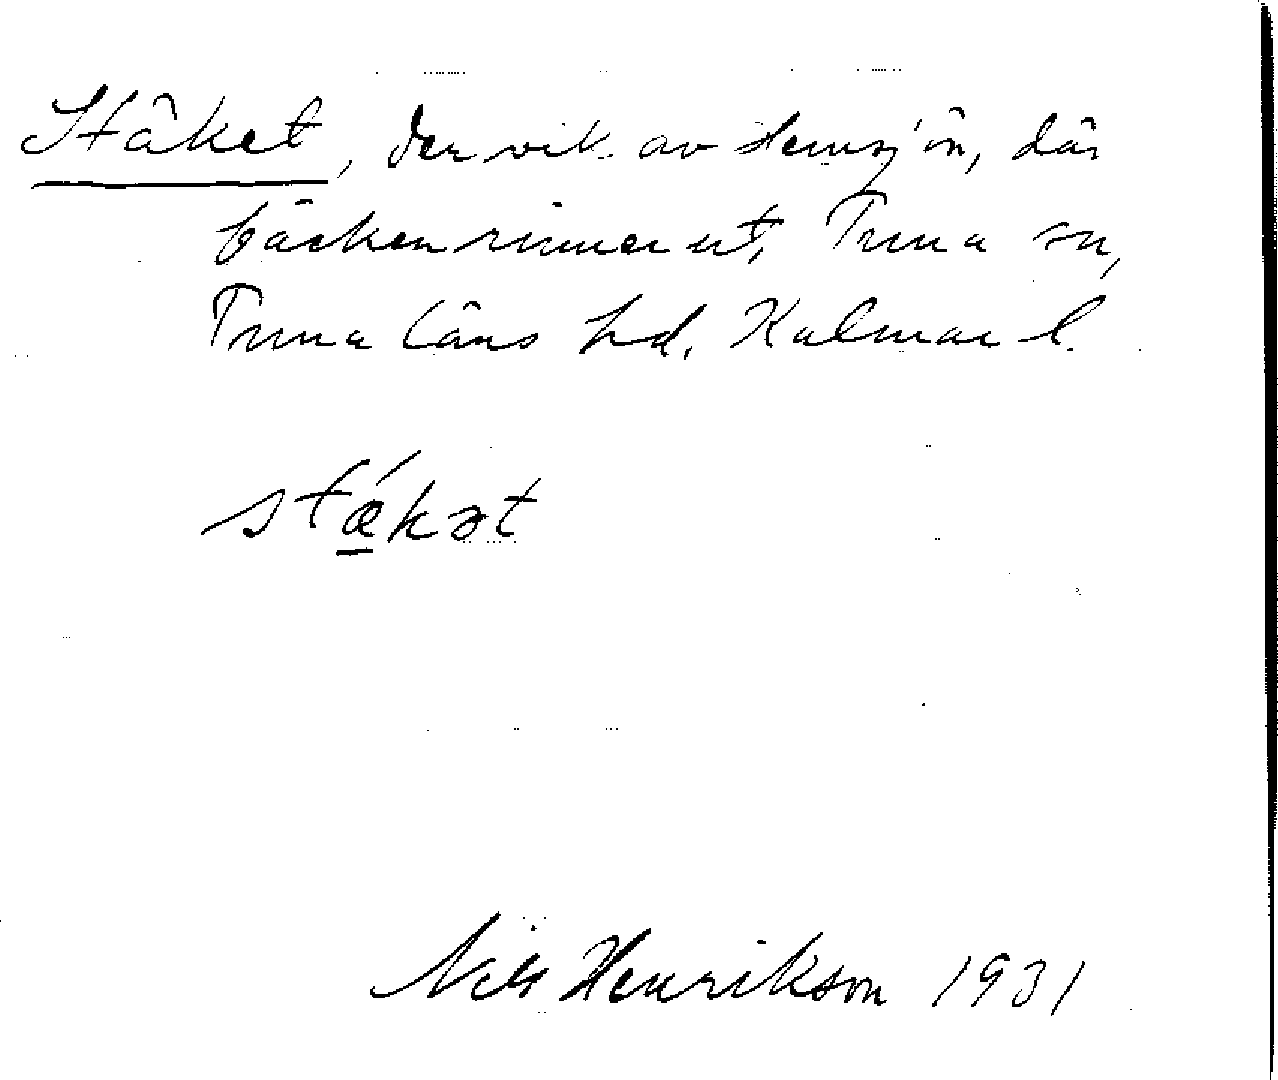 Stäket, den vik av Hemsjön, där
bäcken rinner ut, Tuna sn,
Tuna läns hd, Kalmar l.
stǽkət
Nils Henrikson 1931